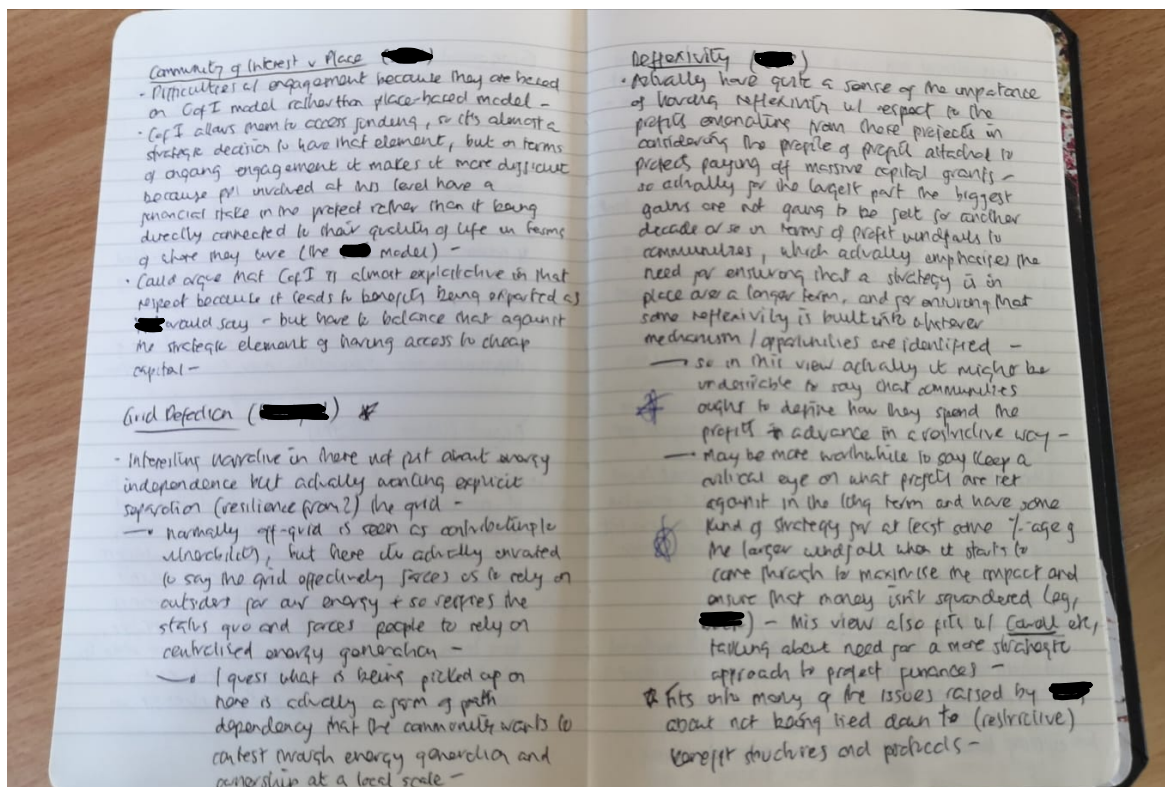 Community of Interest v Place (
• Difficulties w/ engagement because they are based
on CofI model rather than place-based model –
• CofI allows them to access funding, so it's almost a
strategic decision to have that element, but in terms
of ongoing engagement it makes it more difficult
because ppl involved at this level have a
financial stake in the project rather than it being
directly connected to their quality of life in terms
of where they live (the model) –
• Could argue that CofI is almost in that
respect because it leads to benefits being exported as
would say – but have to balance that against
the strategic element of having access to cheap
capital –
Grid Defection ( ) *
• Interesting narrative in there not just about energy
independence but actually wanting explicit
separation (resilience from?) the grid –
→ normally off-grid is seen as contributing to
vulnerability, but here it's actually
to say the grid effectively forces us to rely on
outsiders for our energy + so the
status quo and forces people to rely on
centralised energy generation –
→ I guess what is being picked up on
here is actually a form of path
dependency that the community wants to
contest through energy generation and
ownership at a local scale –
Reflexivity ( )
• Actually have quite a sense of the importance
of having reflexivity w/ respect to the
profits emanating from these projects in
considering the profile of profit attached to
projects paying off massive capital grants –
so actually for the largest part the biggest
gains are not going to be felt for another
decade or so in terms of profit windfalls to
communities, which actually emphasises the
need for ensuring that a strategy is in
place over a longer term, and for ensuring that
some reflexivity is built into whatever
mechanism / opportunities are identified –
→ so in this view actually it might be
undesirable to say that communities
ought to define how they spend the
profits in advance in a restrictive way –
→ may be more worthwhile to say keep a
critical eye on what projects are set
against in the long term and have some
kind of strategy for at least some %-age of
the larger windfall when it starts to
come through to maximise the impact and
ensure that money isn't squandered (eg,
) – this view also fits w/ etc,
talking about need for a more strategic
approach to project finances –
* Fits into many of the issues raised by
about not being tied down to (restrictive)
benefit structures and protocols –